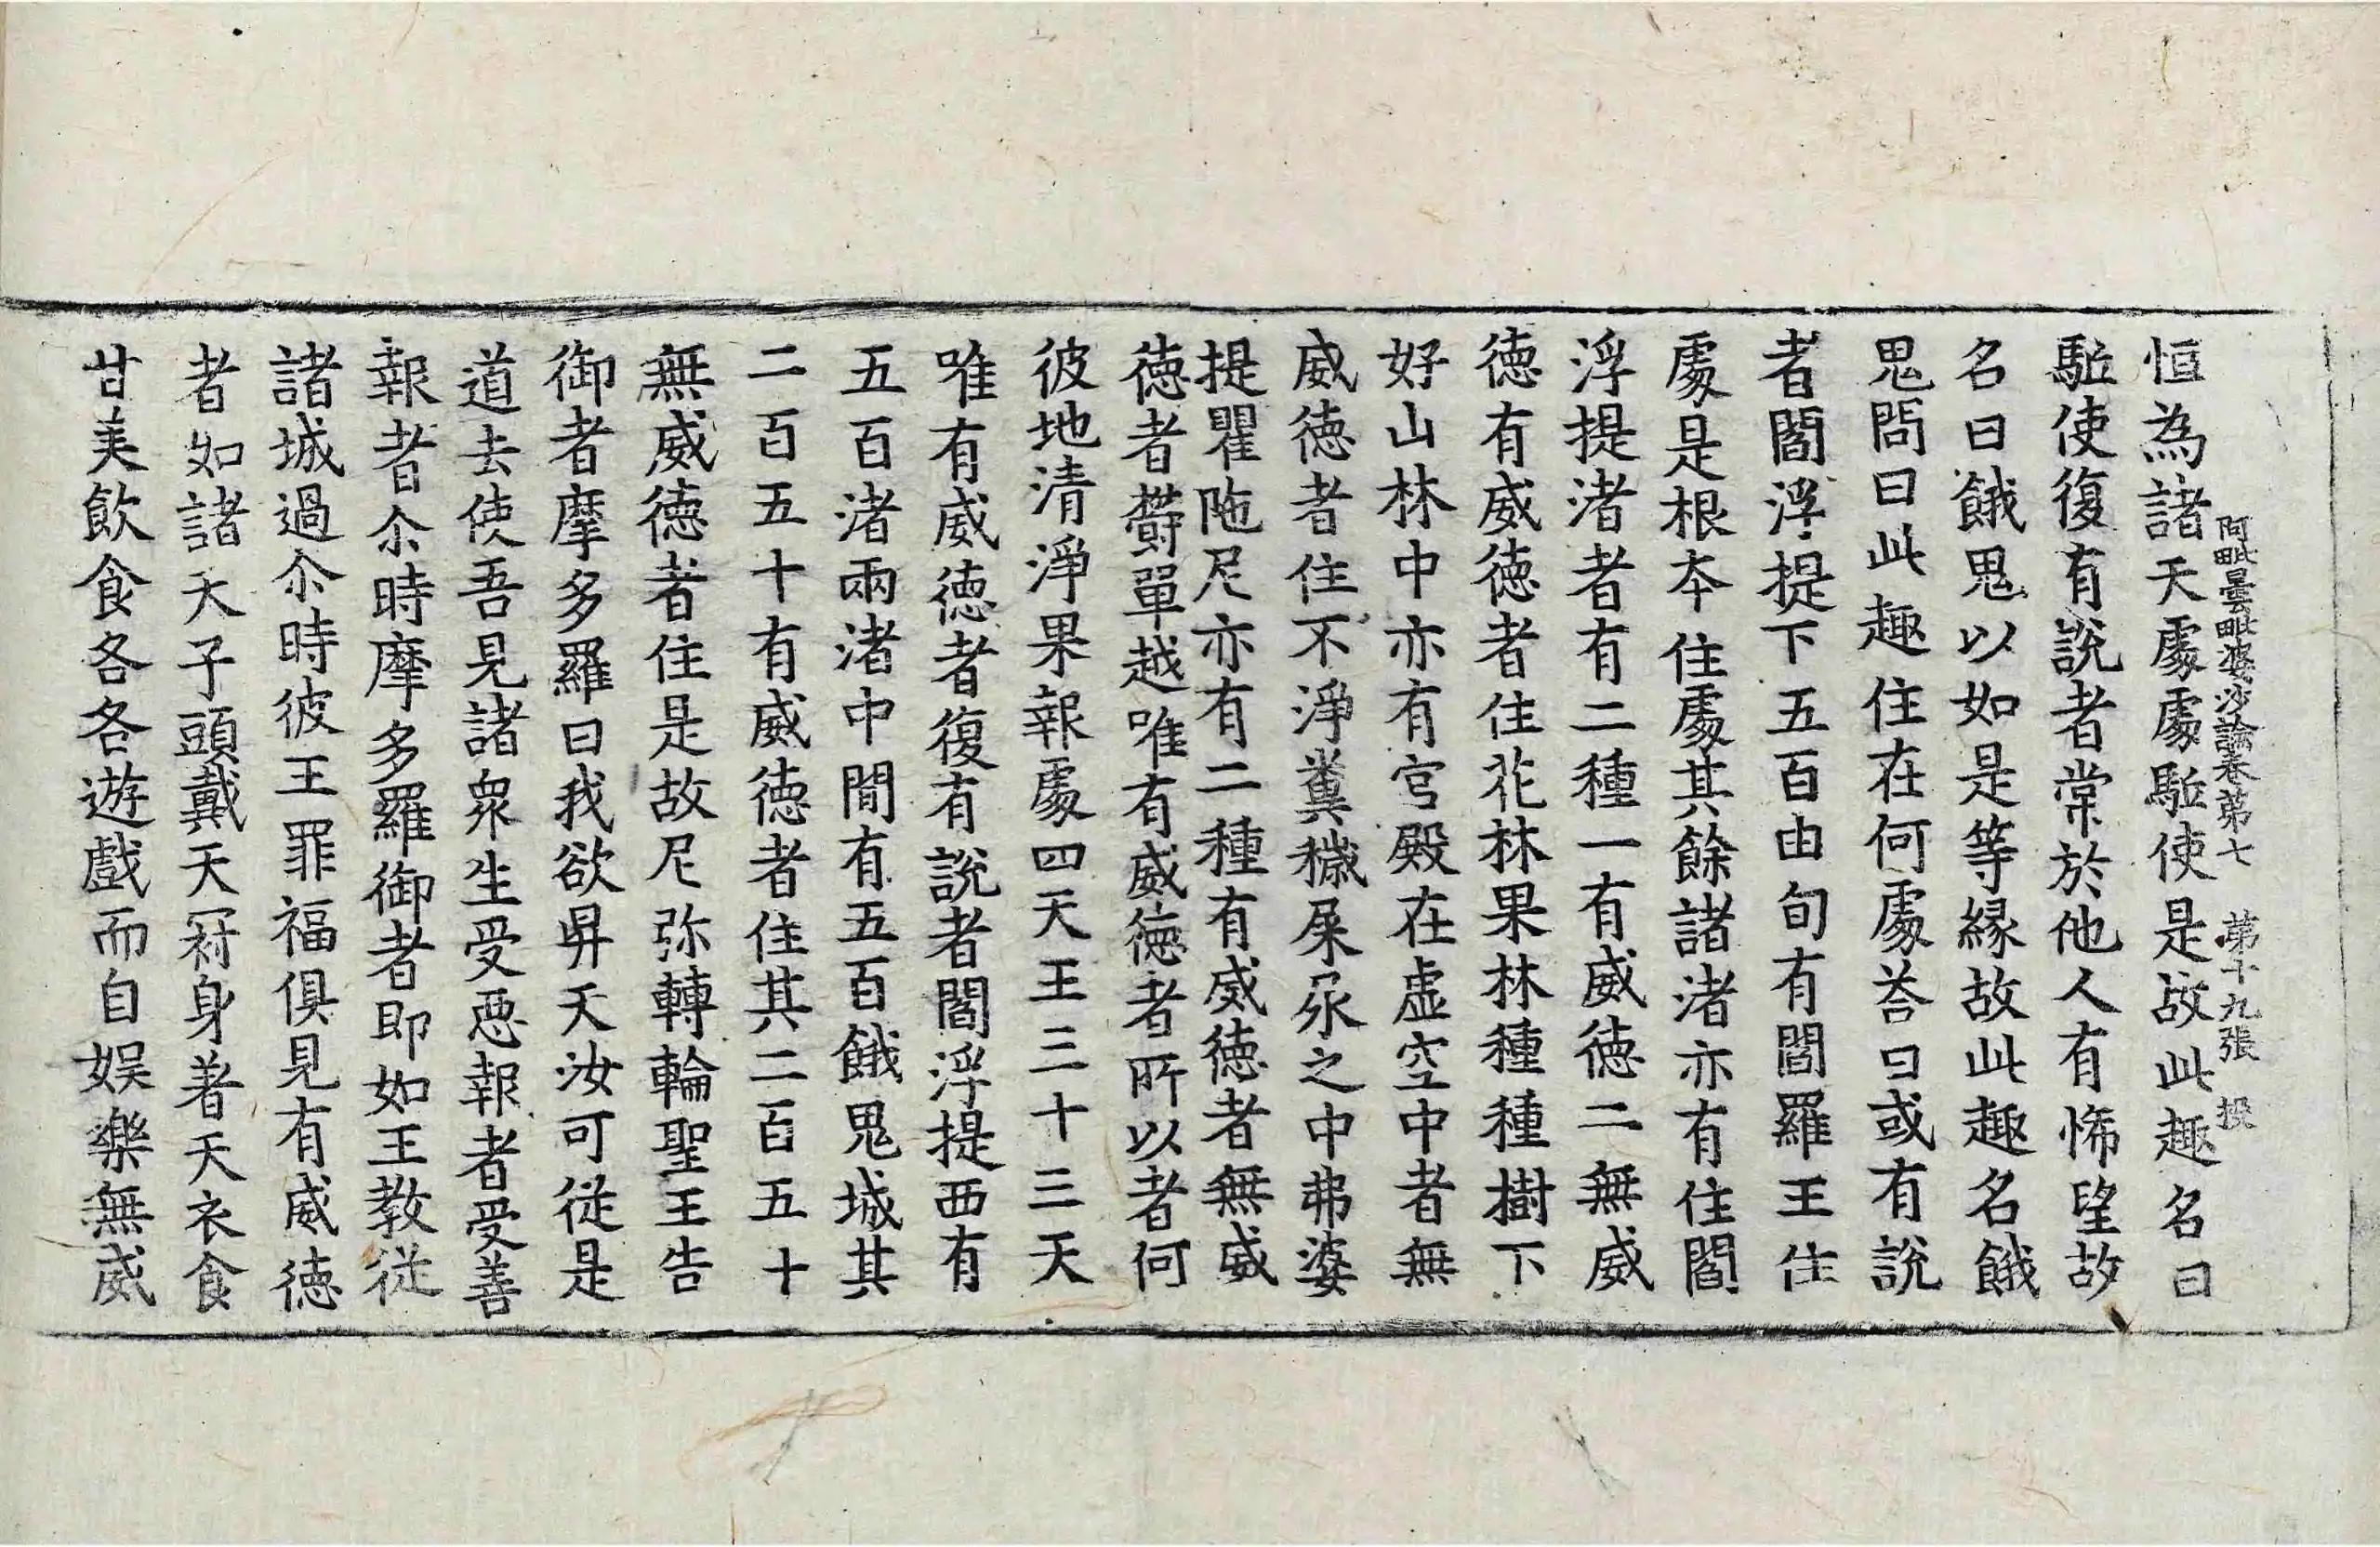 阿毗曇毗婆沙論卷第七 第十九張 投
恒為諸天處處駈使是故此趣名曰
駈使復有說者常於他人有悕望故
名曰餓鬼以如是等緣故此趣名餓
鬼問曰此趣住在何處荅曰或有說
者閻浮提下五百由旬有閻羅王住
處是根本住處其餘諸渚亦有住閻
浮提渚者有二種一有威德二無威
德有威德者住花林果林種種樹下
好山林中亦有宮殿在虛空中者無
威德者住不淨糞穢屎尿之中弗婆
提瞿陁尼亦有二種有威德者無威
德者欝單越唯有威德者所以者何
彼地清淨果報處四天王三十三天
唯有威德者復有說者閻浮提西有
五百渚兩渚中間有五百餓鬼城其
二百五十有威德者住其二百五十
無威德者住是故尼弥轉輪聖王告
御者摩多羅曰我欲昇天汝可從是
道去使吾見諸眾生受惡報者受善
報者尒時摩多羅御者即如王教從
諸城過尒時彼王罪福俱見有威德
者如諸天子頭戴天冠身著天衣食
甘美飲食各各遊戲而自娛樂無威